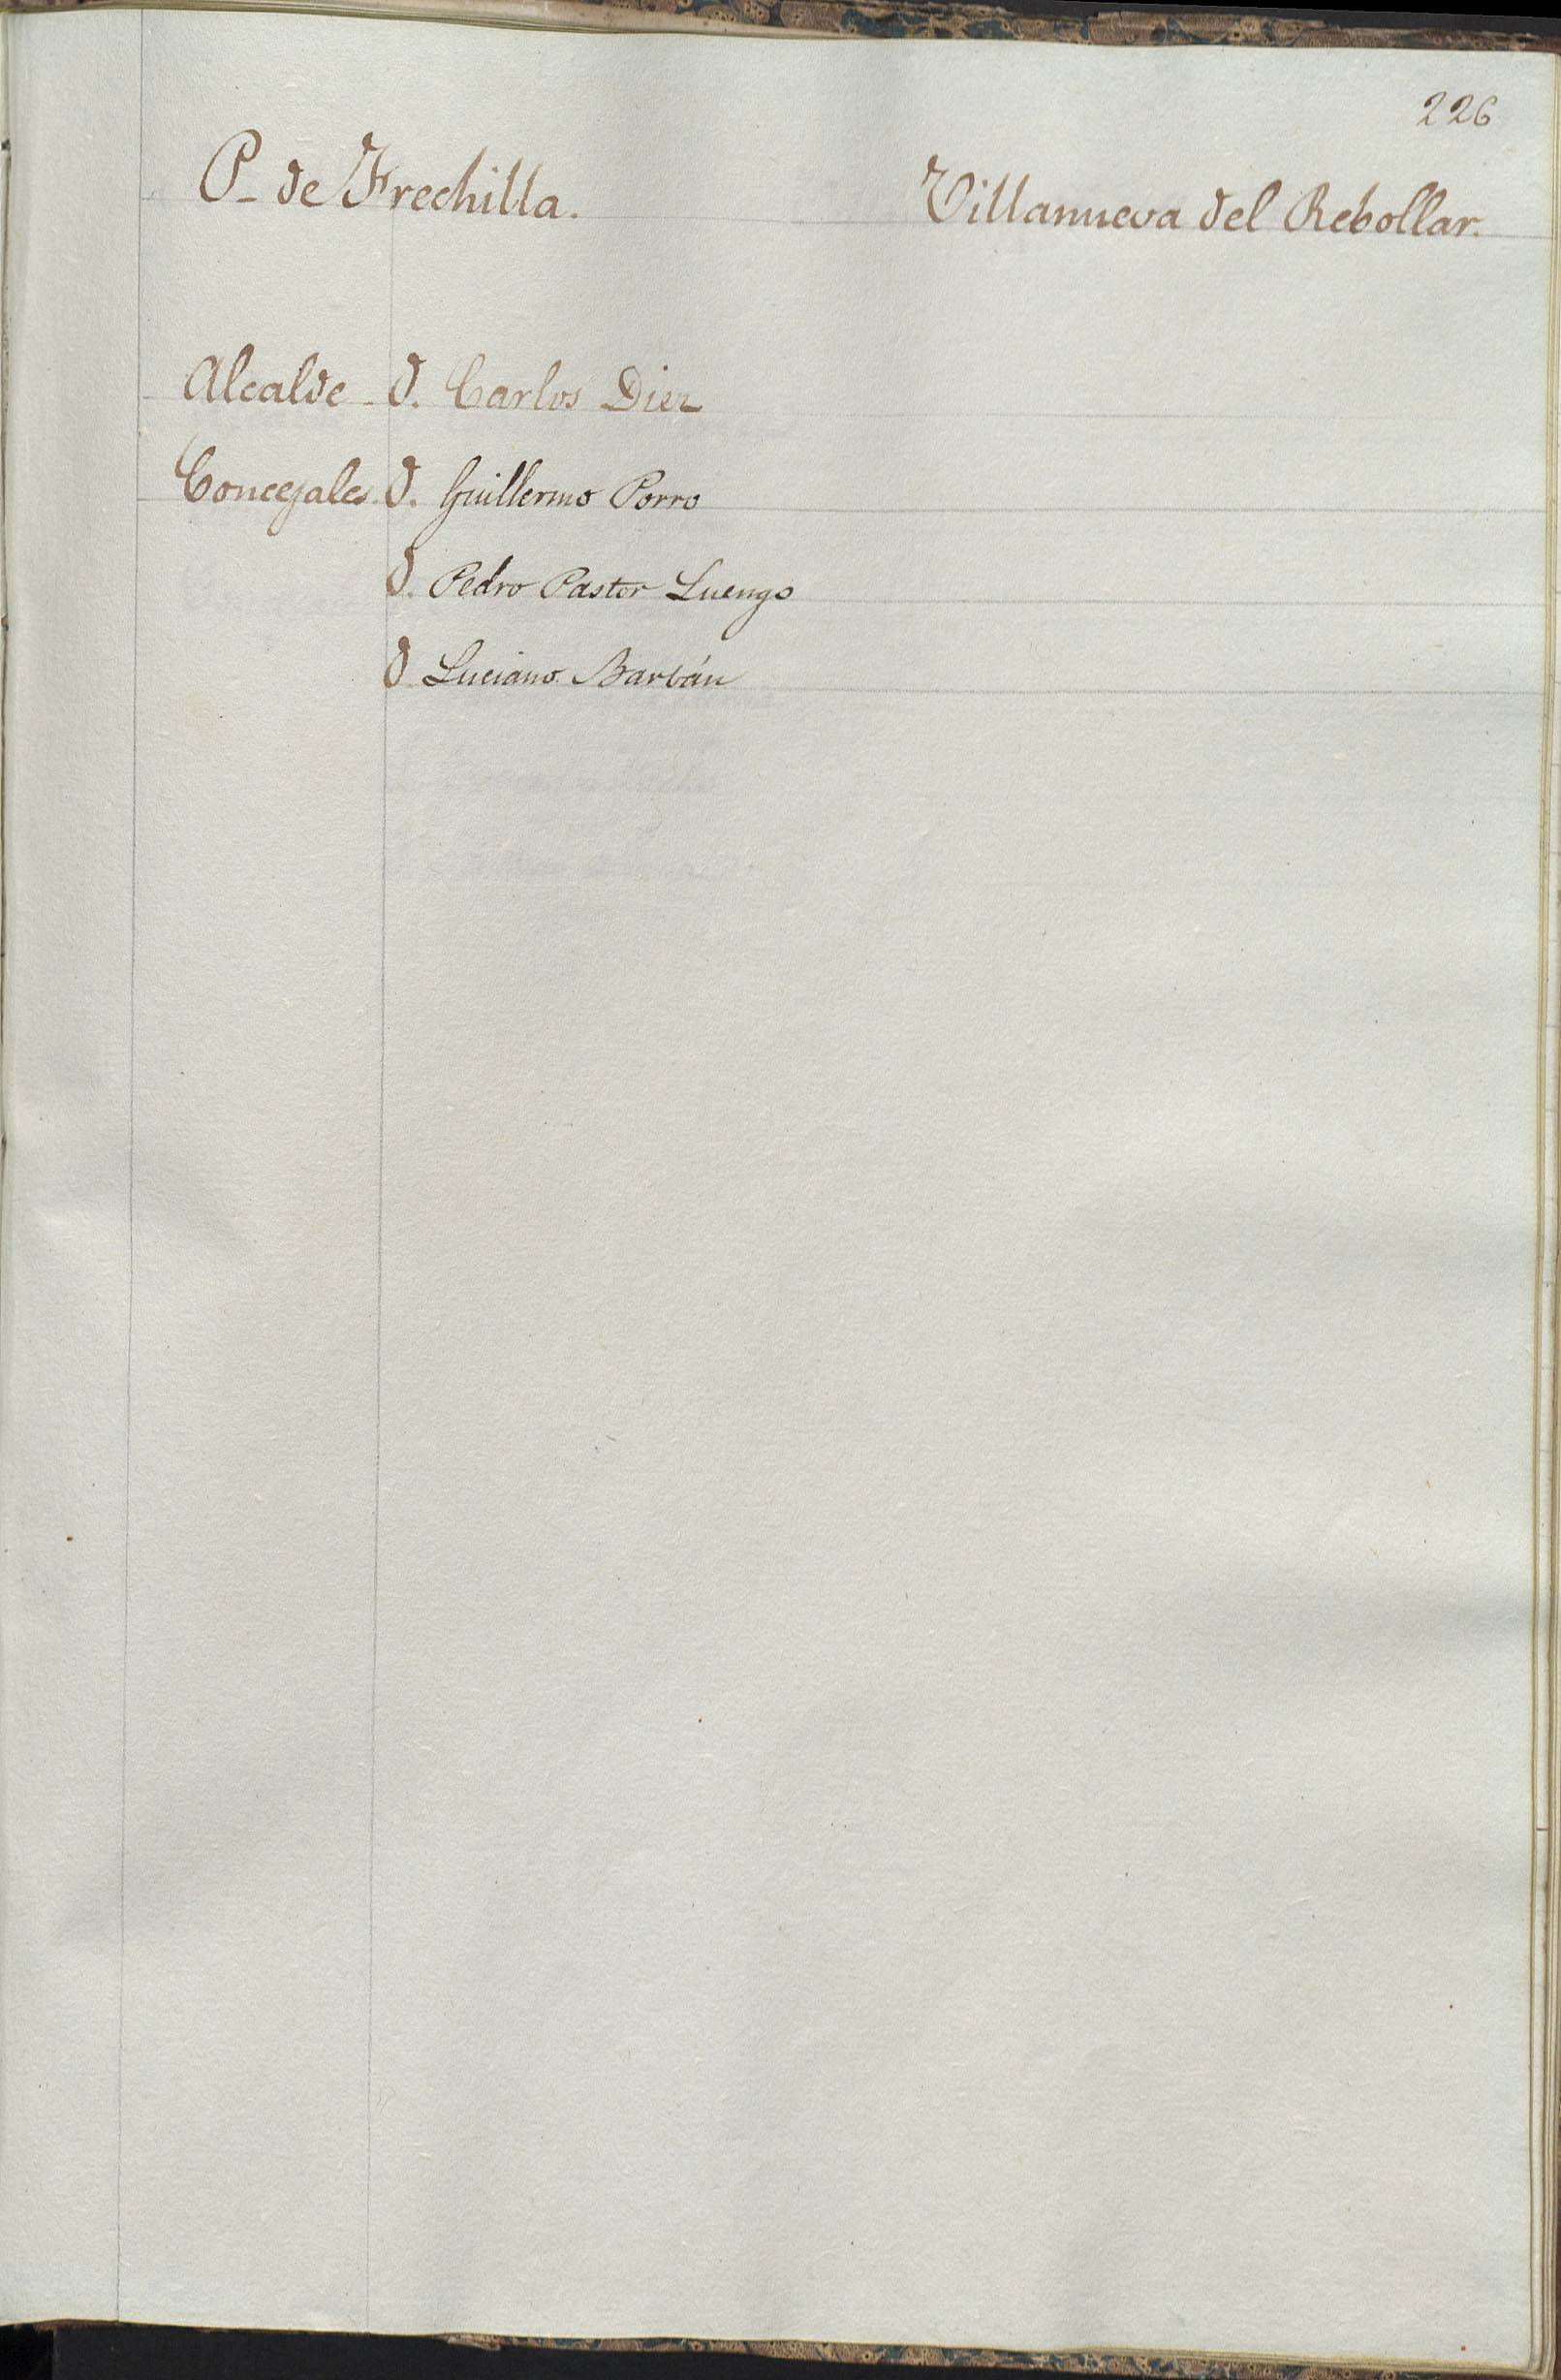 226
P_ de Frechilla. Villanueva del Rebollar.
Alcalde _ D. Carlos Diez
Concejales. D. Guillermo Porro
D. Pedro Pastor Luengo
D Luciano Barbán